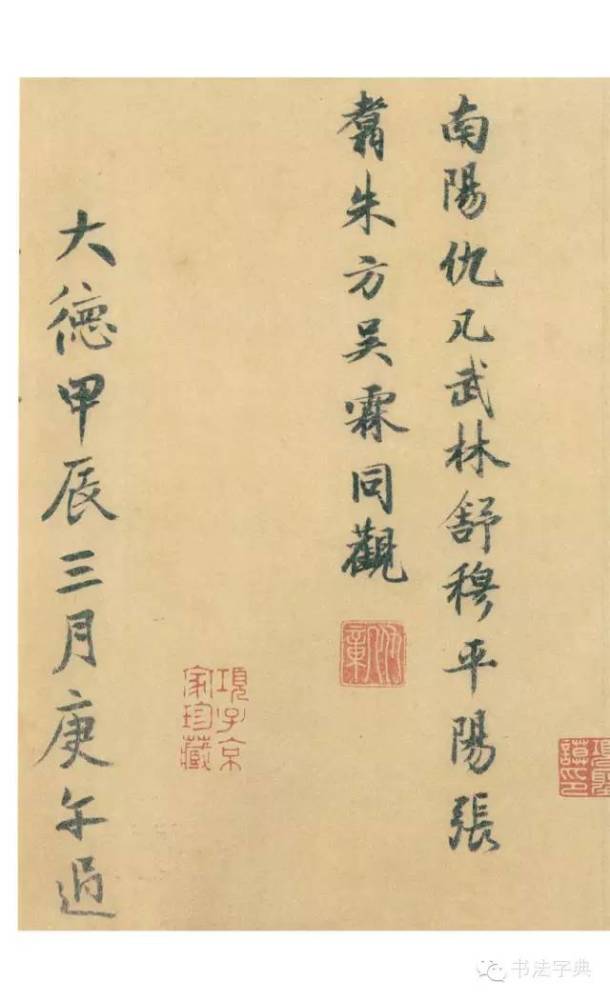 南陽仇几武林舒穆平陽張
翥朱方吴霖同觀
大德甲辰三月庚午過
項子京
家珍藏
书法字典